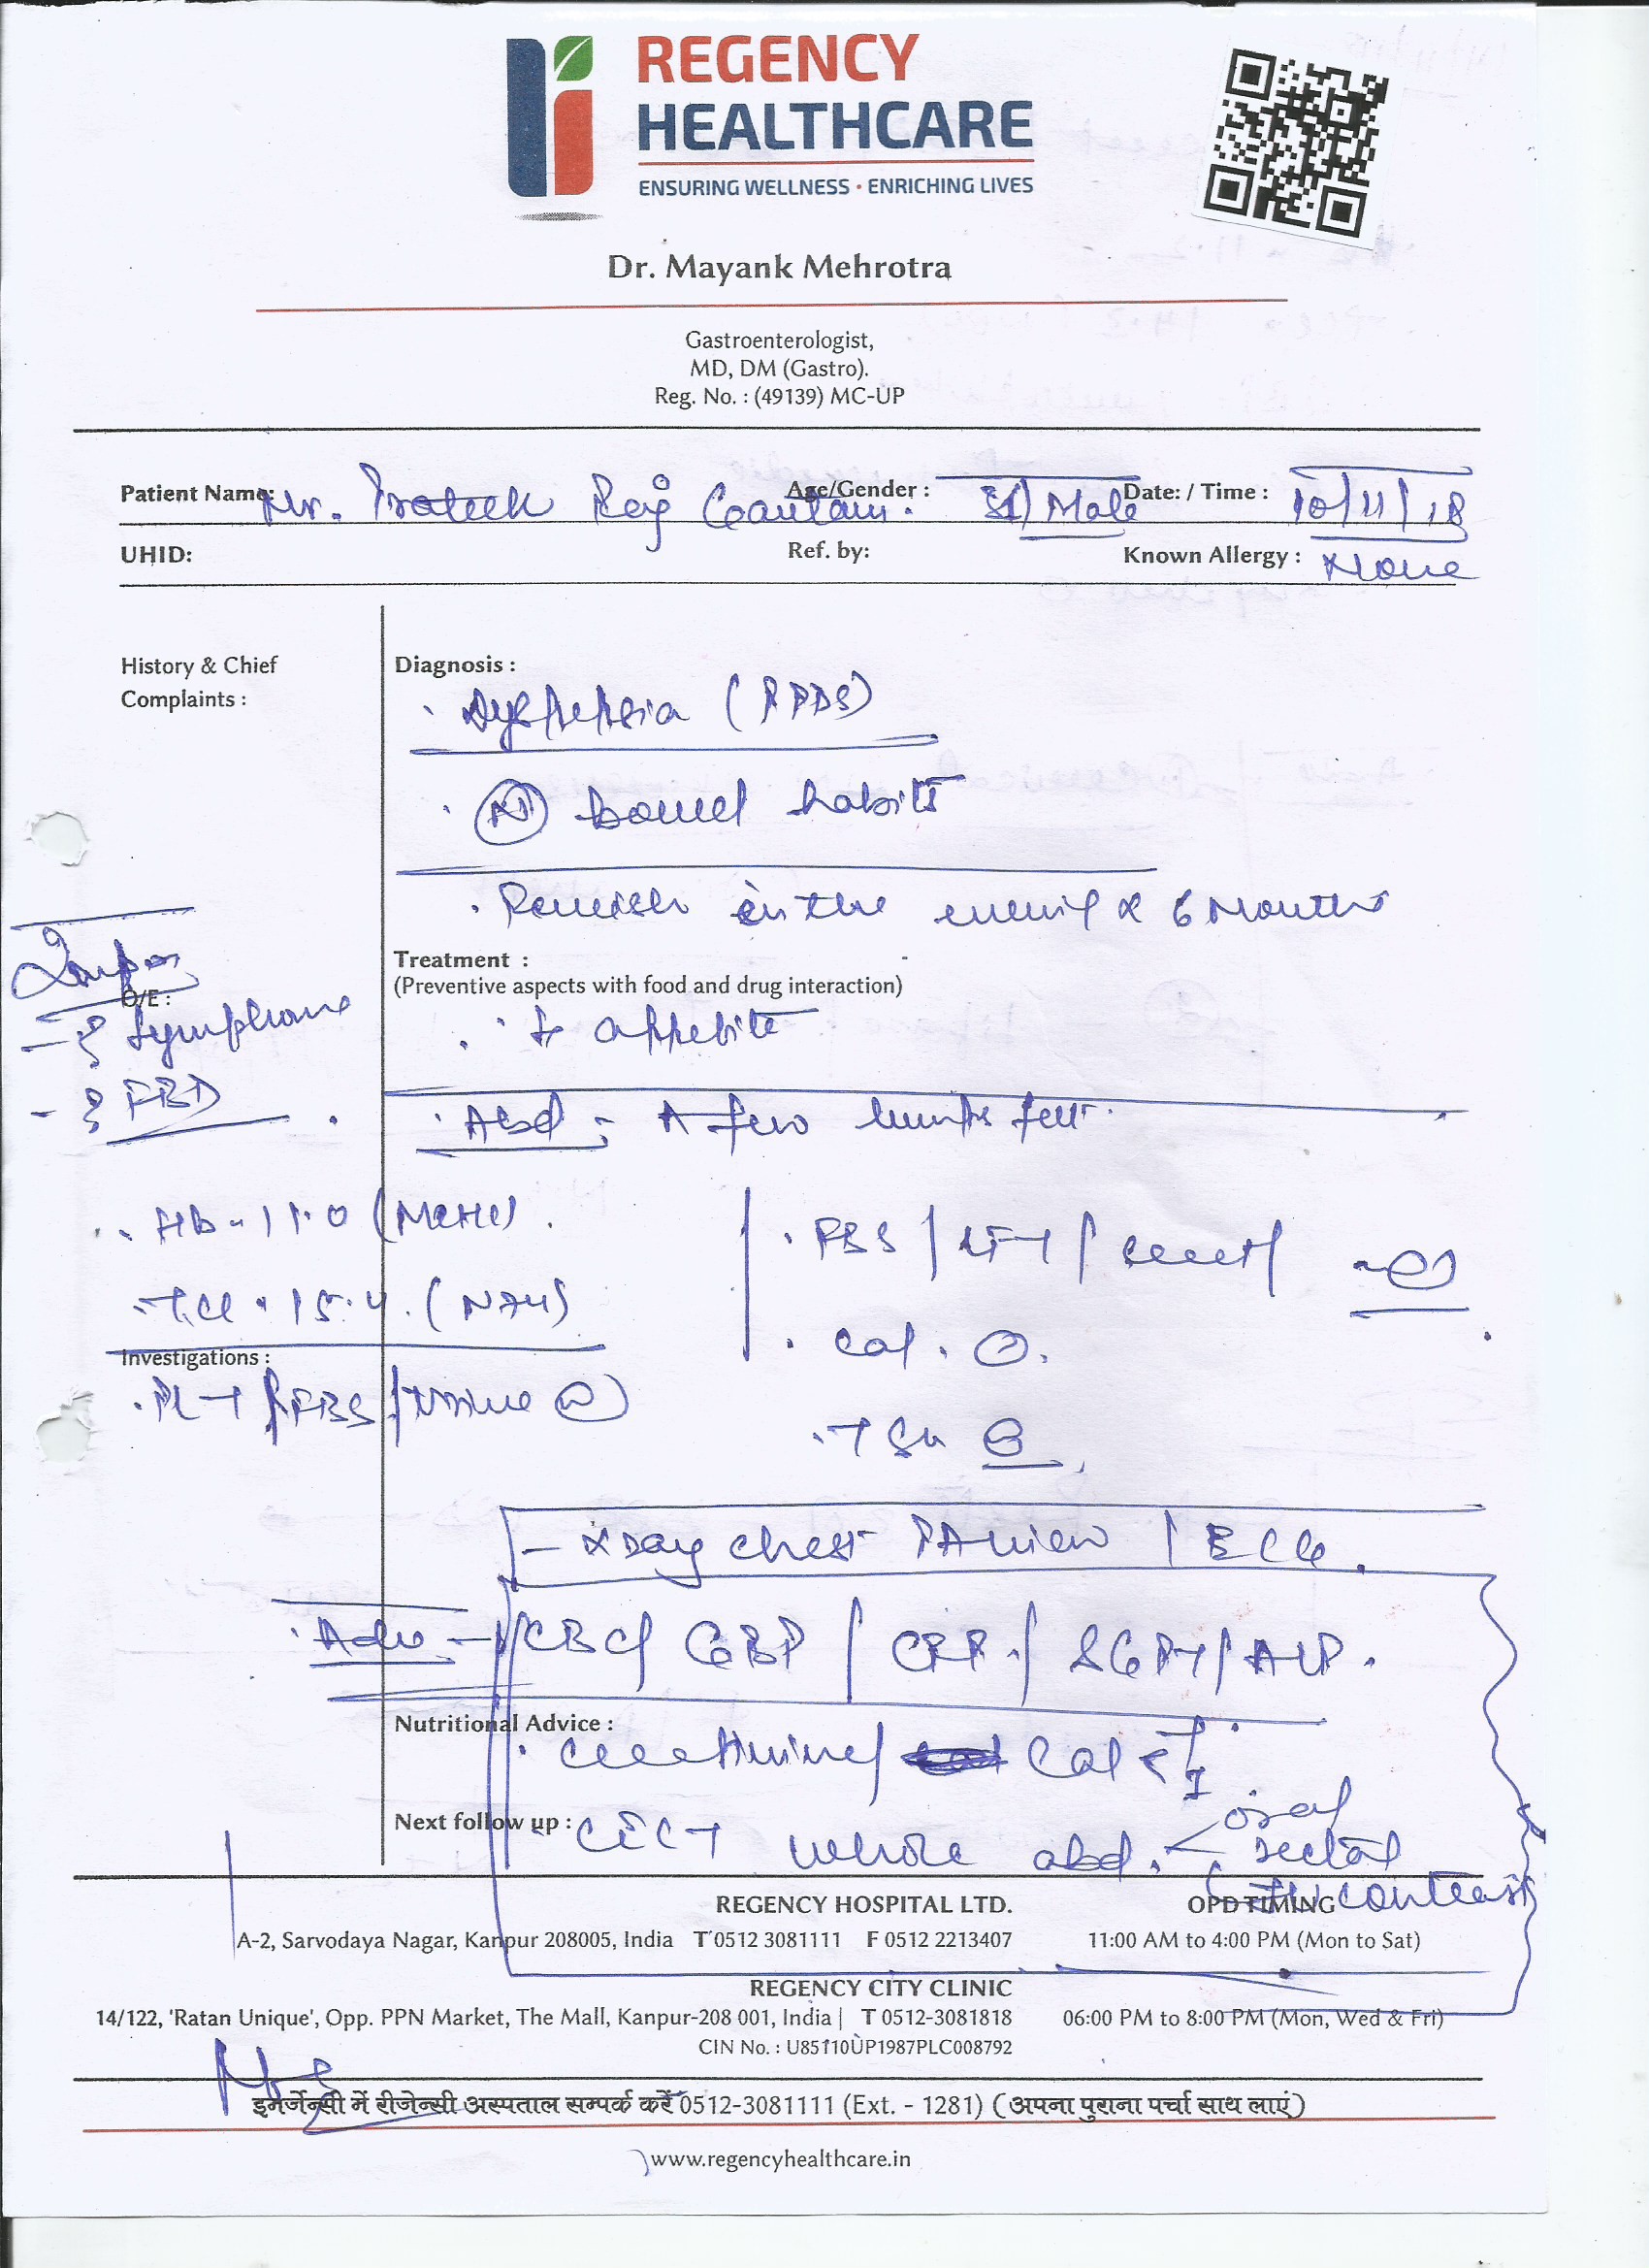 REGENCY
HEALTHCARE
ENSURING WELLNESS • ENRICHING LIVES
Dr. Mayank Mehrotra
Gastroenterologist,
MD, DM (Gastro).
Reg. No. : (49139) MC-UP
Patient Name: Mr. Prateek Raj Gautam. Age/Gender : 31/Male Date: / Time : 10/11/18
UHID: Ref. by: Known Allergy : None
History & Chief
Complaints :
Diagnosis :
. Dyspepsia (PPDS)
. (N) bowel habits
. in the evening x 6 Months
Treatment :
(Preventive aspects with food and drug interaction)
O/E :
- ? Lymphoma
. appetite
- ? IBD
. Abd : A few lumps felt.
. Hb - 11.0 (MCHC).
. PBS / LFT /
. TLC . 15.4. (
. Cal .
Investigations :
. PLT / / Urine
. TSH
- X Day chest PA view / ECG.
. Adv - CBC/ GBP / CRP / SGPT / ALP.
Nutritional Advice :
. Creatinine / Cal
Next follow up : CECT whole abd. < oral
rectal
contrast
REGENCY HOSPITAL LTD. OPD TIMING
A-2, Sarvodaya Nagar, Kanpur 208005, India T 0512 3081111 F 0512 2213407 11:00 AM to 4:00 PM (Mon to Sat)
REGENCY CITY CLINIC
14/122, 'Ratan Unique', Opp. PPN Market, The Mall, Kanpur-208 001, India | T 0512-3081818 06:00 PM to 8:00 PM (Mon, Wed & Fri)
CIN No. : U85110UP1987PLC008792
इमर्जेन्सी में रीजेन्सी अस्पताल सम्पर्क करें 0512-3081111 (Ext. - 1281) (अपना पुराना पर्चा साथ लाएं)
www.regencyhealthcare.in